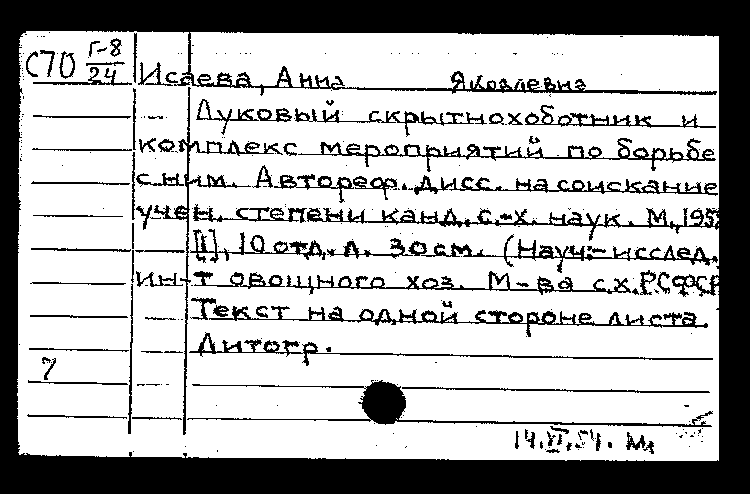 С70 Г-8/24
Исаева, Анна Яковлевна
Луковый скрытнохоботник и
комплекс мероприятий по борьбе
с ним. Автореф. дисс. на соискание
учен. степени канд. с.-х. наук. М.,
[1], 10 отд. л. 30 см. (Науч.-исслед.
ин-т овощного хоз. М-ва с.х. РСФСР
Текст на одной стороне листа.
Литогр.
7
14.VI.54.